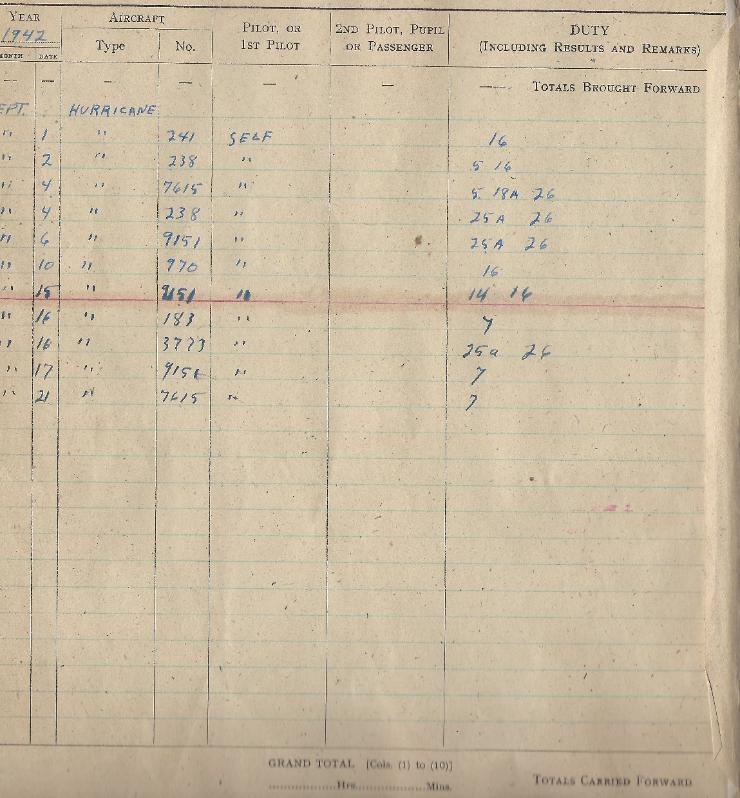 YEAR AIRCRAFT PILOT, OR 1ST PILOT 2ND PILOT, PUPIL OR PASSENGER DUTY (INCLUDING RESULTS AND REMARKS)
1942 Type No.
MONTH DATE
— — — — — — —— TOTALS BROUGHT FORWARD
EPT. HURRICANE
" 1 " 241 SELF 16
" 2 " 238 " 5 16
" 4 " 7615 " 5 18A 26
" 4 " 238 " 25A 26
" 6 " 9151 " 25A 26
" 10 " 970 " 16
" 15 " 9151 " 14 16
" 16 " 183 " 7
" 16 " 3773 " 25a 26
" 17 " 9151 " 7
" 21 " 7615 " 7
GRAND TOTAL [Cols. (1) to (10)]
..................Hrs..................Mins.
TOTALS CARRIED FORWARD